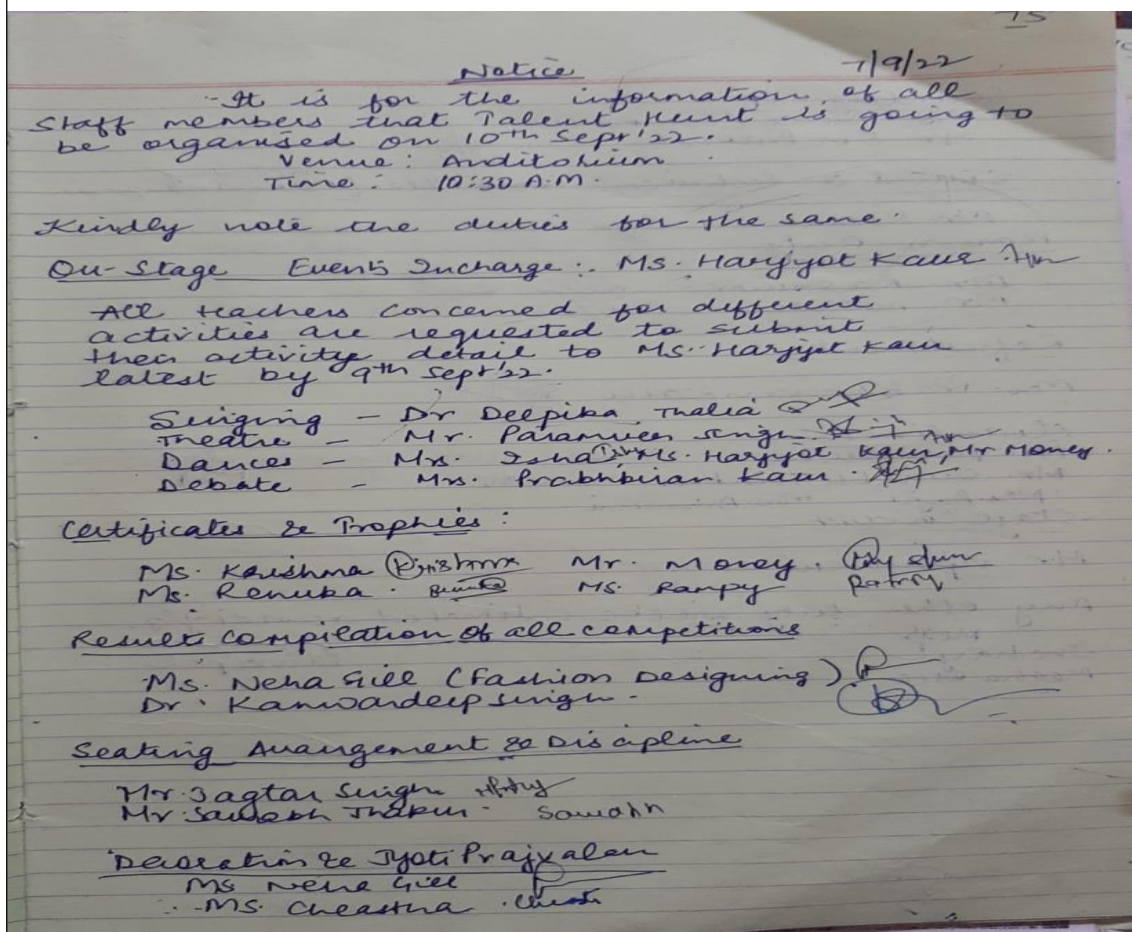 15
Notice 7/9/22
It is for the information of all
Staff members that Talent Hunt is going to
be organised on 10th Sept'22.
Venue: Auditorium
Time: 10:30 A.M.
Kindly note the duties for the same.
On-Stage Events Incharge:- Ms. Harjyot Kaur
All teachers concerned for different
activities are requested to submit
their activity detail to Ms. Harjyot Kaur
latest by 9th Sept'22.
Singing - Dr Deepika Thalia
Theatre - Mr. Paramveer Singh
Dances - Mrs. Isha, Ms. Harjyot Kaur, Mr Money.
Debate - Mrs. Prabhkiran Kaur
Certificates & Trophies:
Ms. Karishma Karishma Mr. Money.
Ms. Renuka. Renuka Ms. Rampy
Result compilation of all competitions
Ms. Neha Gill (Fashion Designing)
Dr. Kanwardeep Singh.
Seating Arrangement & Discipline
Mr. Jagtar Singh
Mr. Saurabh Thakur. Saurabh
Decoration & Jyoti Prajvalan
Ms Neha Gill
Ms. Cheastha